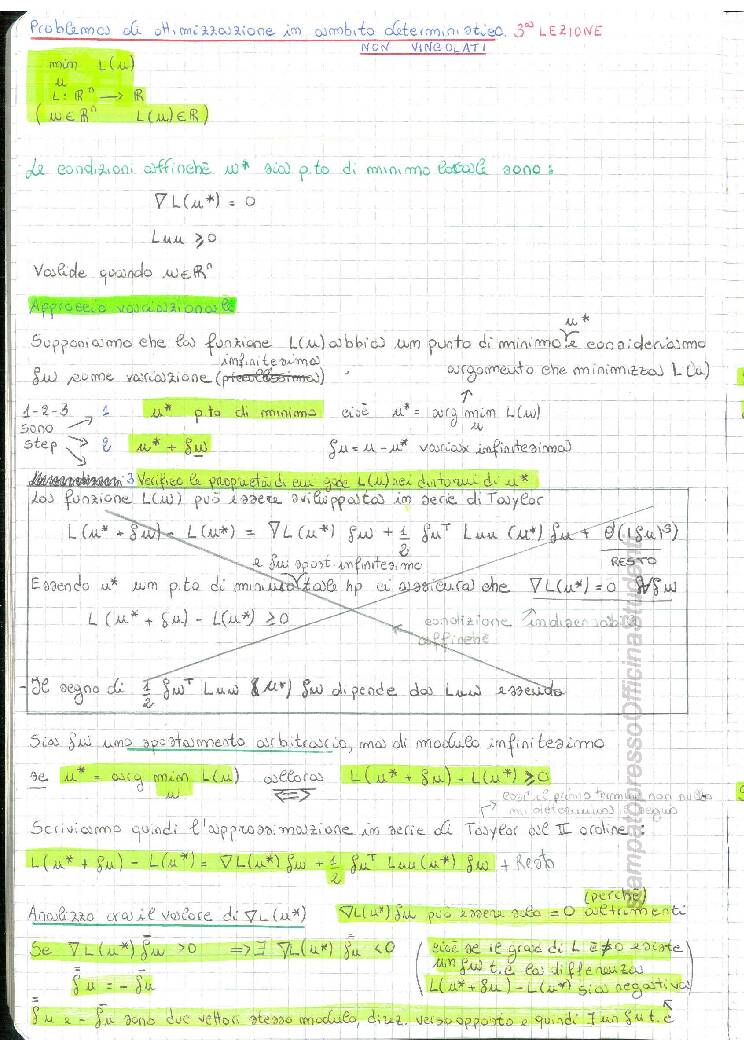 Problema di ottimizzazione in ambito deterministico. 3ª LEZIONE
NON VINCOLATI
min L(u)
u
L: ℝⁿ → ℝ
( u ∈ ℝⁿ L(u) ∈ ℝ )
Le condizioni affinchè u* sia p.to di minimo locale sono:
∇L(u*) = 0
Luu ⩾ 0
Valide quando u ∈ ℝⁿ
Approccio variazionale
u*
Supponiamo che la funzione L(u) abbia un punto di minimo e consideriamo
infinitesima
δu come variazione (piccolissima) argomento che minimizza L(u)
1-2-3 1 u* p.to di minimo cioè u* = arg min L(u)
sono u
step 2 u* + δu δu = u - u* variaz infinitesima
3 Verifico le proprietà di cui gode L(u) nei dintorni di u*
La funzione L(u) può essere sviluppata in serie di Taylor
L(u* + δu) - L(u*) = ∇L(u*) δu + 1/2 δuᵀ Luu (u*) δu + O(|δu|³)
e δu spost infinitesimo RESTO
Essendo u* un p.to di minimo tale hp ci assicura che ∇L(u*) = 0 ∀δu
L(u* + δu) - L(u*) ⩾ 0 condizione indispensabile
affinchè
- Il segno di 1/2 δuᵀ Luu (u*) δu dipende da Luu essendo
Sia δu uno spostamento arbitrario, ma di modulo infinitesimo
se u* = arg min L(u) allora L(u* + δu) - L(u*) ⩾ 0
u ⟺
così il primo termine non nullo
mi determina il segno
Scriviamo quindi l'approssimazione in serie di Taylor al II ordine:
L(u* + δu) - L(u*) = ∇L(u*) δu + 1/2 δuᵀ Luu(u*) δu + Resto
(perchè)
Analizzo ora il valore di ∇L(u*) ∇L(u*) δu può essere solo = 0 altrimenti
Se ∇L(u*) δ̄u > 0 ⟹ ∃ ∇L(u*) δ̿u < 0 ( cioè se il grad di L è ≠ 0 esiste
un δu t.c la differenza
δ̿u = - δ̄u L(u* + δu) - L(u*) sia negativa )
δ̿u e - δ̄u sono due vettori stesso modulo, direz. verso opposto e quindi ∃ un δu t.c
StampatopressoOfficinaStudenti